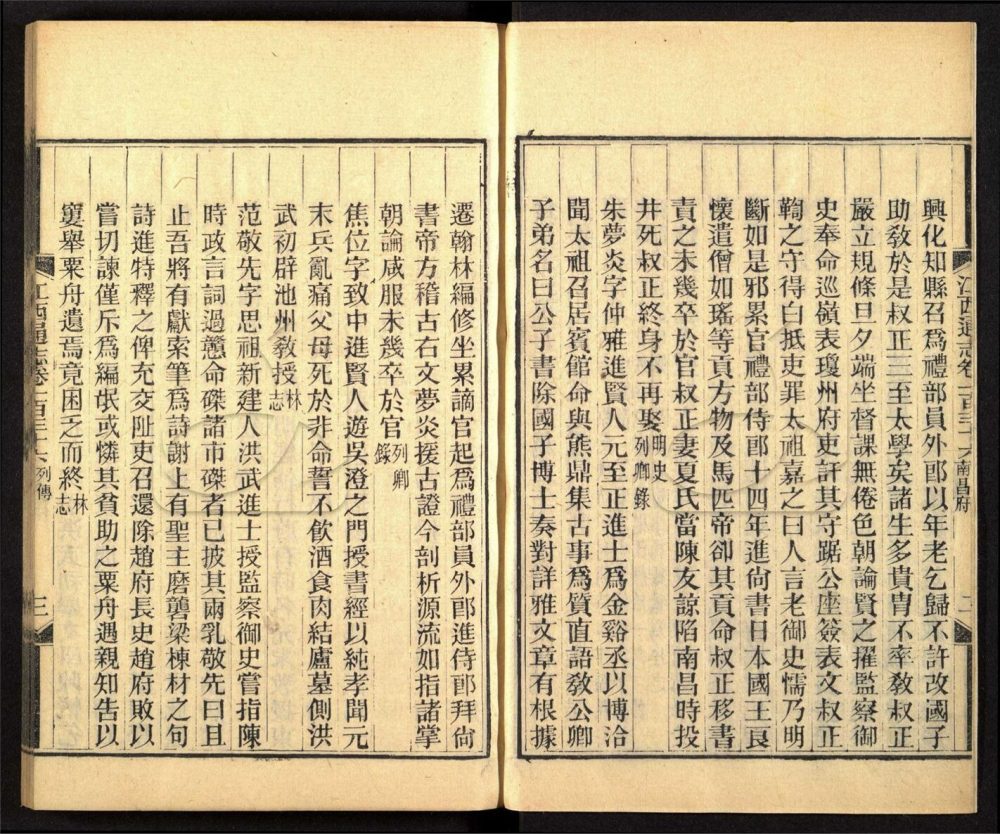 興化知縣召爲禮部員外郎以年老乞歸不許改國子
助敎於是叔正三至太學矣諸生多貴胄不率敎叔正
嚴立規條旦夕端坐督課無倦色朝論賢之擢監察御
史奉命巡嶺表瓊州府吏訐其守踞公座簽表文叔正
鞫之守得白抵吏罪太祖嘉之曰人言老御史懦乃明
斷如是邪累官禮部侍郎十四年進尙書日本國王良
懷遣僧如瑤等貢方物及馬匹帝卻其貢命叔正移書
責之未幾卒於官叔正妻夏氏當陳友諒陷南昌時投
井死叔正終身不再娶明史列卿錄
朱夢炎字仲雅進賢人元至正進士爲金谿丞以博洽
聞太祖召居賓館命與熊鼎集古事爲質直語敎公卿
子弟名曰公子書除國子博士奏對詳雅文章有根據
江西通志卷一百三十六 列傳 南昌府 二
遷翰林編修坐累謫官起爲禮部員外郎進侍郎拜尙
書帝方稽古右文夢炎援古證今剖析源流如指諸掌
朝論咸服未幾卒於官列卿錄
焦位字致中進賢人遊吳澄之門授書經以純孝聞元
末兵亂痛父母死於非命誓不飮酒食肉結廬墓側洪
武初辟池州敎授林志
范敬先字思祖新建人洪武進士授監察御史嘗指陳
時政言詞過戇命磔諸市磔者已披其兩乳敬先曰且
止吾將有獻索筆爲詩謝上有聖主磨礱梁棟材之句
詩進特釋之俾充交阯吏召還除趙府長史趙府敗以
嘗切諫僅斥爲編氓或憐其貧助之粟舟遇親知告以
窶舉粟舟遺焉竟困之而終林志
江西通志卷一百三十六 列傳 三